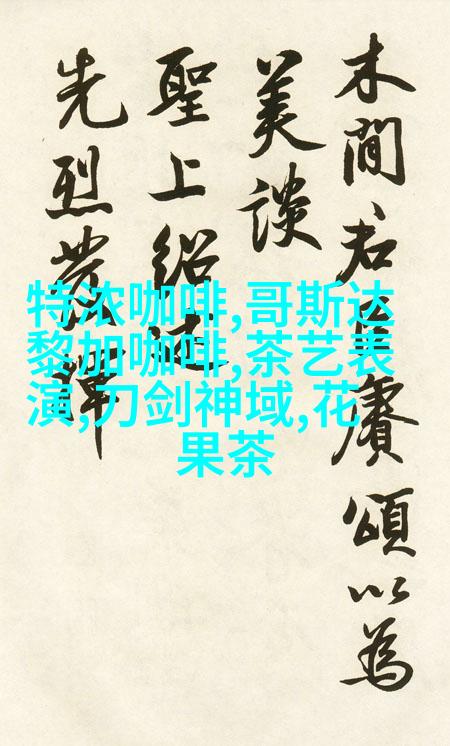 木間君臣賡頌以為
美談
聖上紹
先烈
特浓咖啡,哥斯达
黎加咖啡,茶艺表
演,刀剑神域,花
果茶